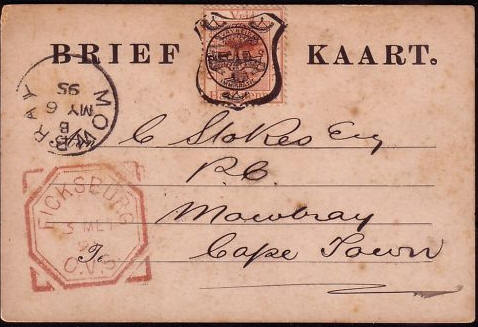 BRIEF KAART.
MOWBRAY
B
MY 6
95
C Stokes Esq
P.O.
Mowbray
Cape Town
FICKSBURG
3 MEI
O.V.S.
To